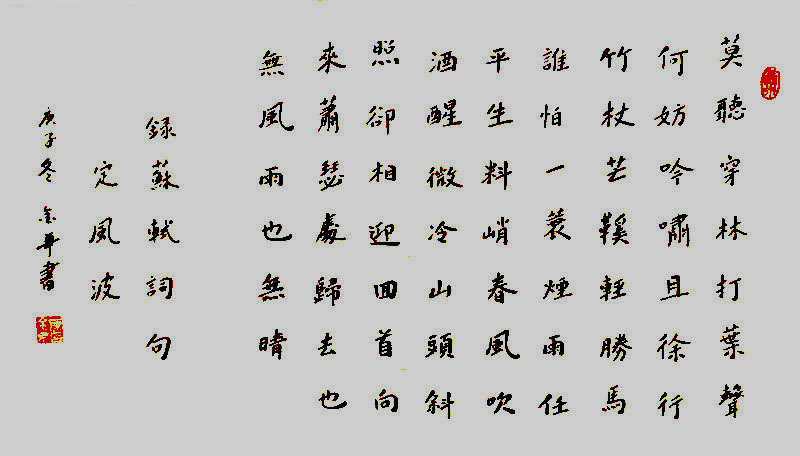 莫聽穿林打葉聲
何妨吟嘯且徐行
竹杖芒鞵輕勝馬
誰怕一蓑煙雨任
平生料峭春風吹
酒醒微冷山頭斜
照卻相迎回首向
來蕭瑟處歸去也
無風雨也無晴
録蘇軾詞句
定風波
庚子冬金華書